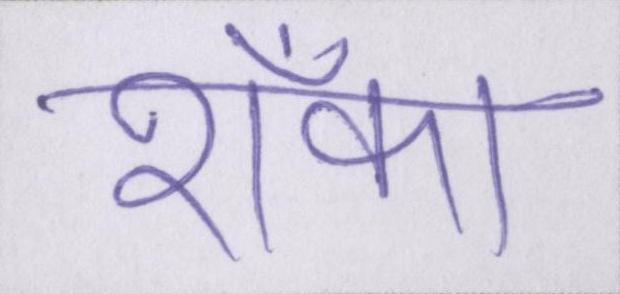 शँका